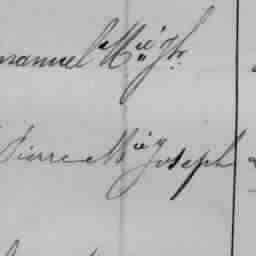 manuel Mie Jh.
Pierre Mie Joseph